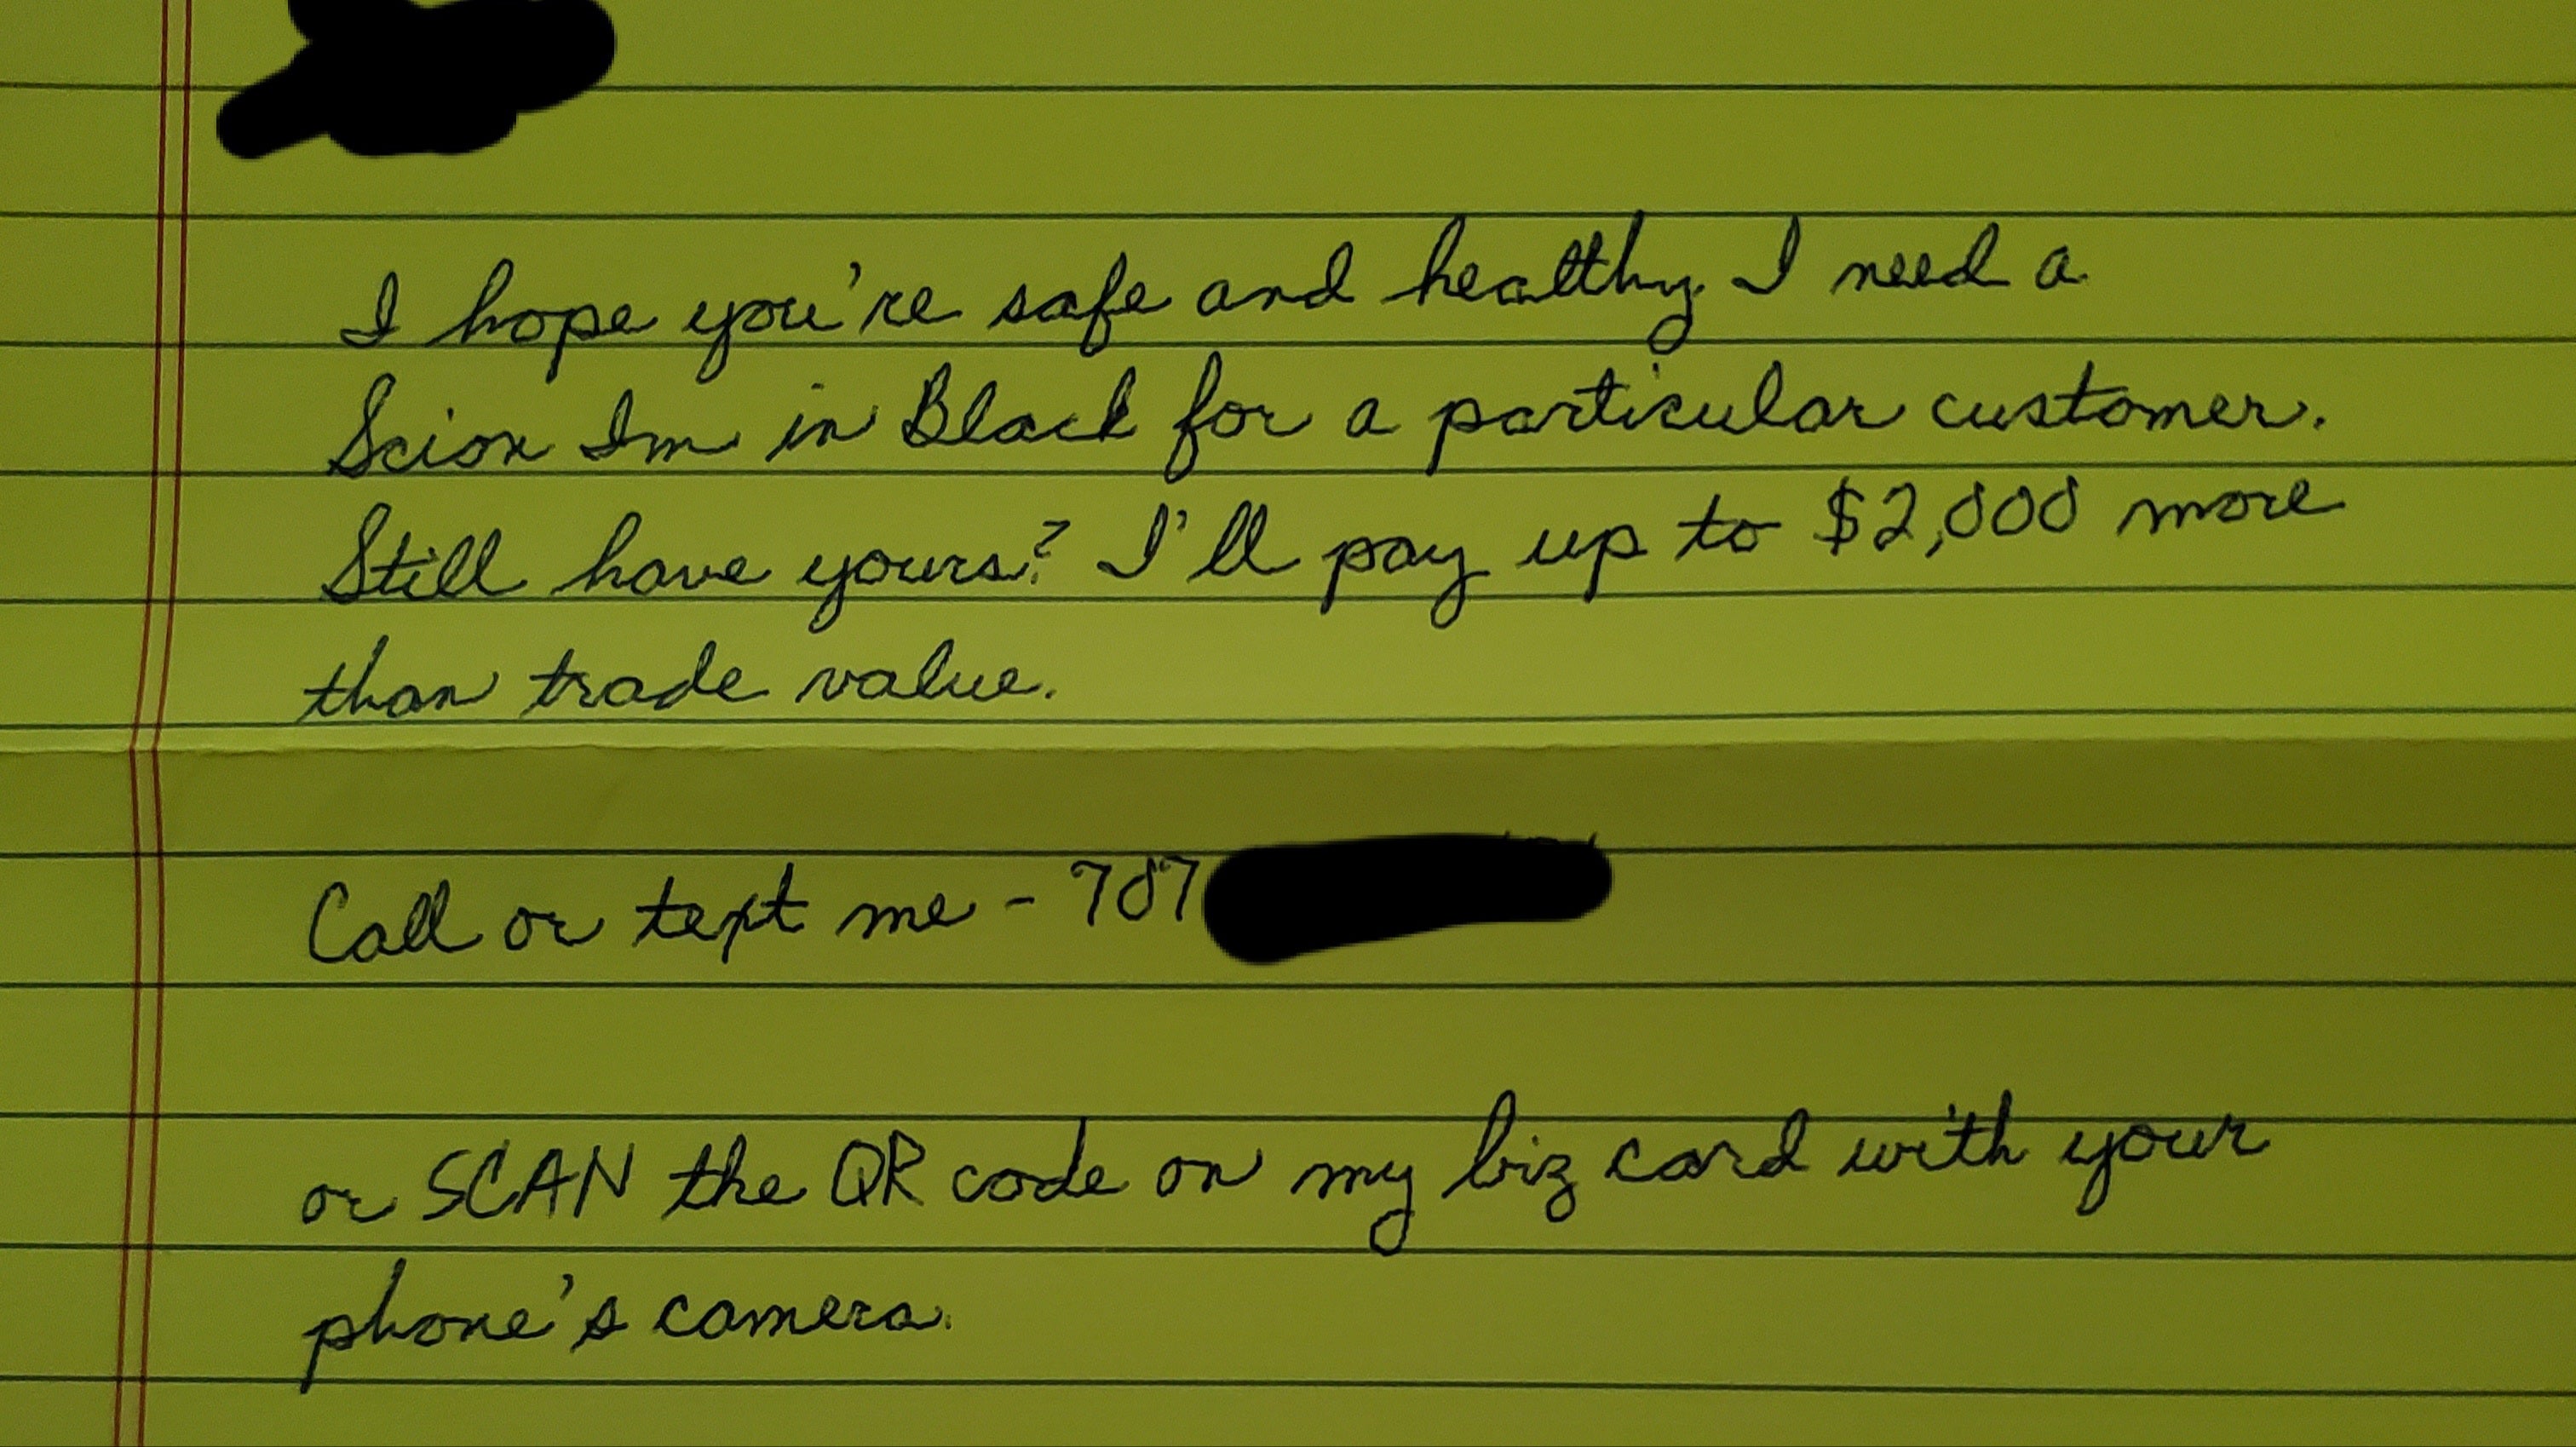 I hope you're safe and healthy. I need a
Scion Im in Black for a particular customer.
Still have yours? I'll pay up to $2,000 more
than trade value.
Call or text me - 707
or SCAN the QR code on my biz card with your
phone's camera.